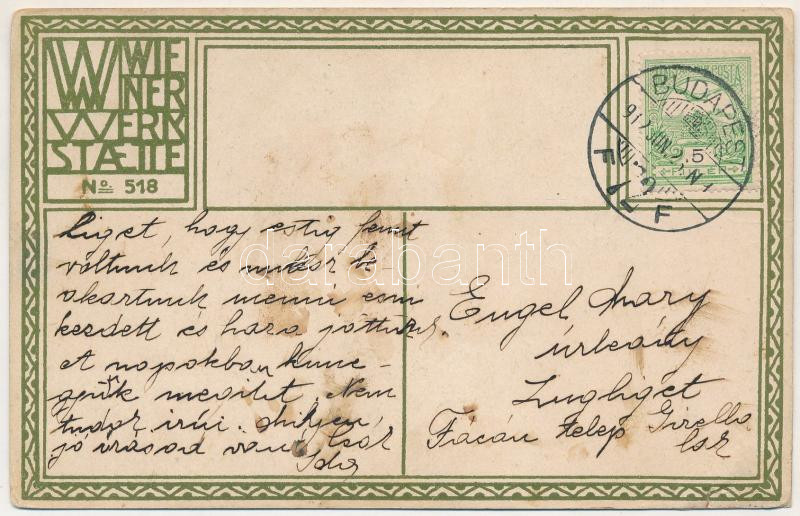 WIE
NER
WERK
STAETTE
No. 518
BUDAPEST
F F
5
darabanth
Liget, hogy estig fent
voltunk és mikor le
akartunk menni esni
kezdett és haza jöttünk.
A napokban kime-
gyünk megint. Nem
tudsz írni. milyen
jó írásod van! Csók
Ida
Engel Mary
úrleány
Zugliget
Fácán telep Gizella